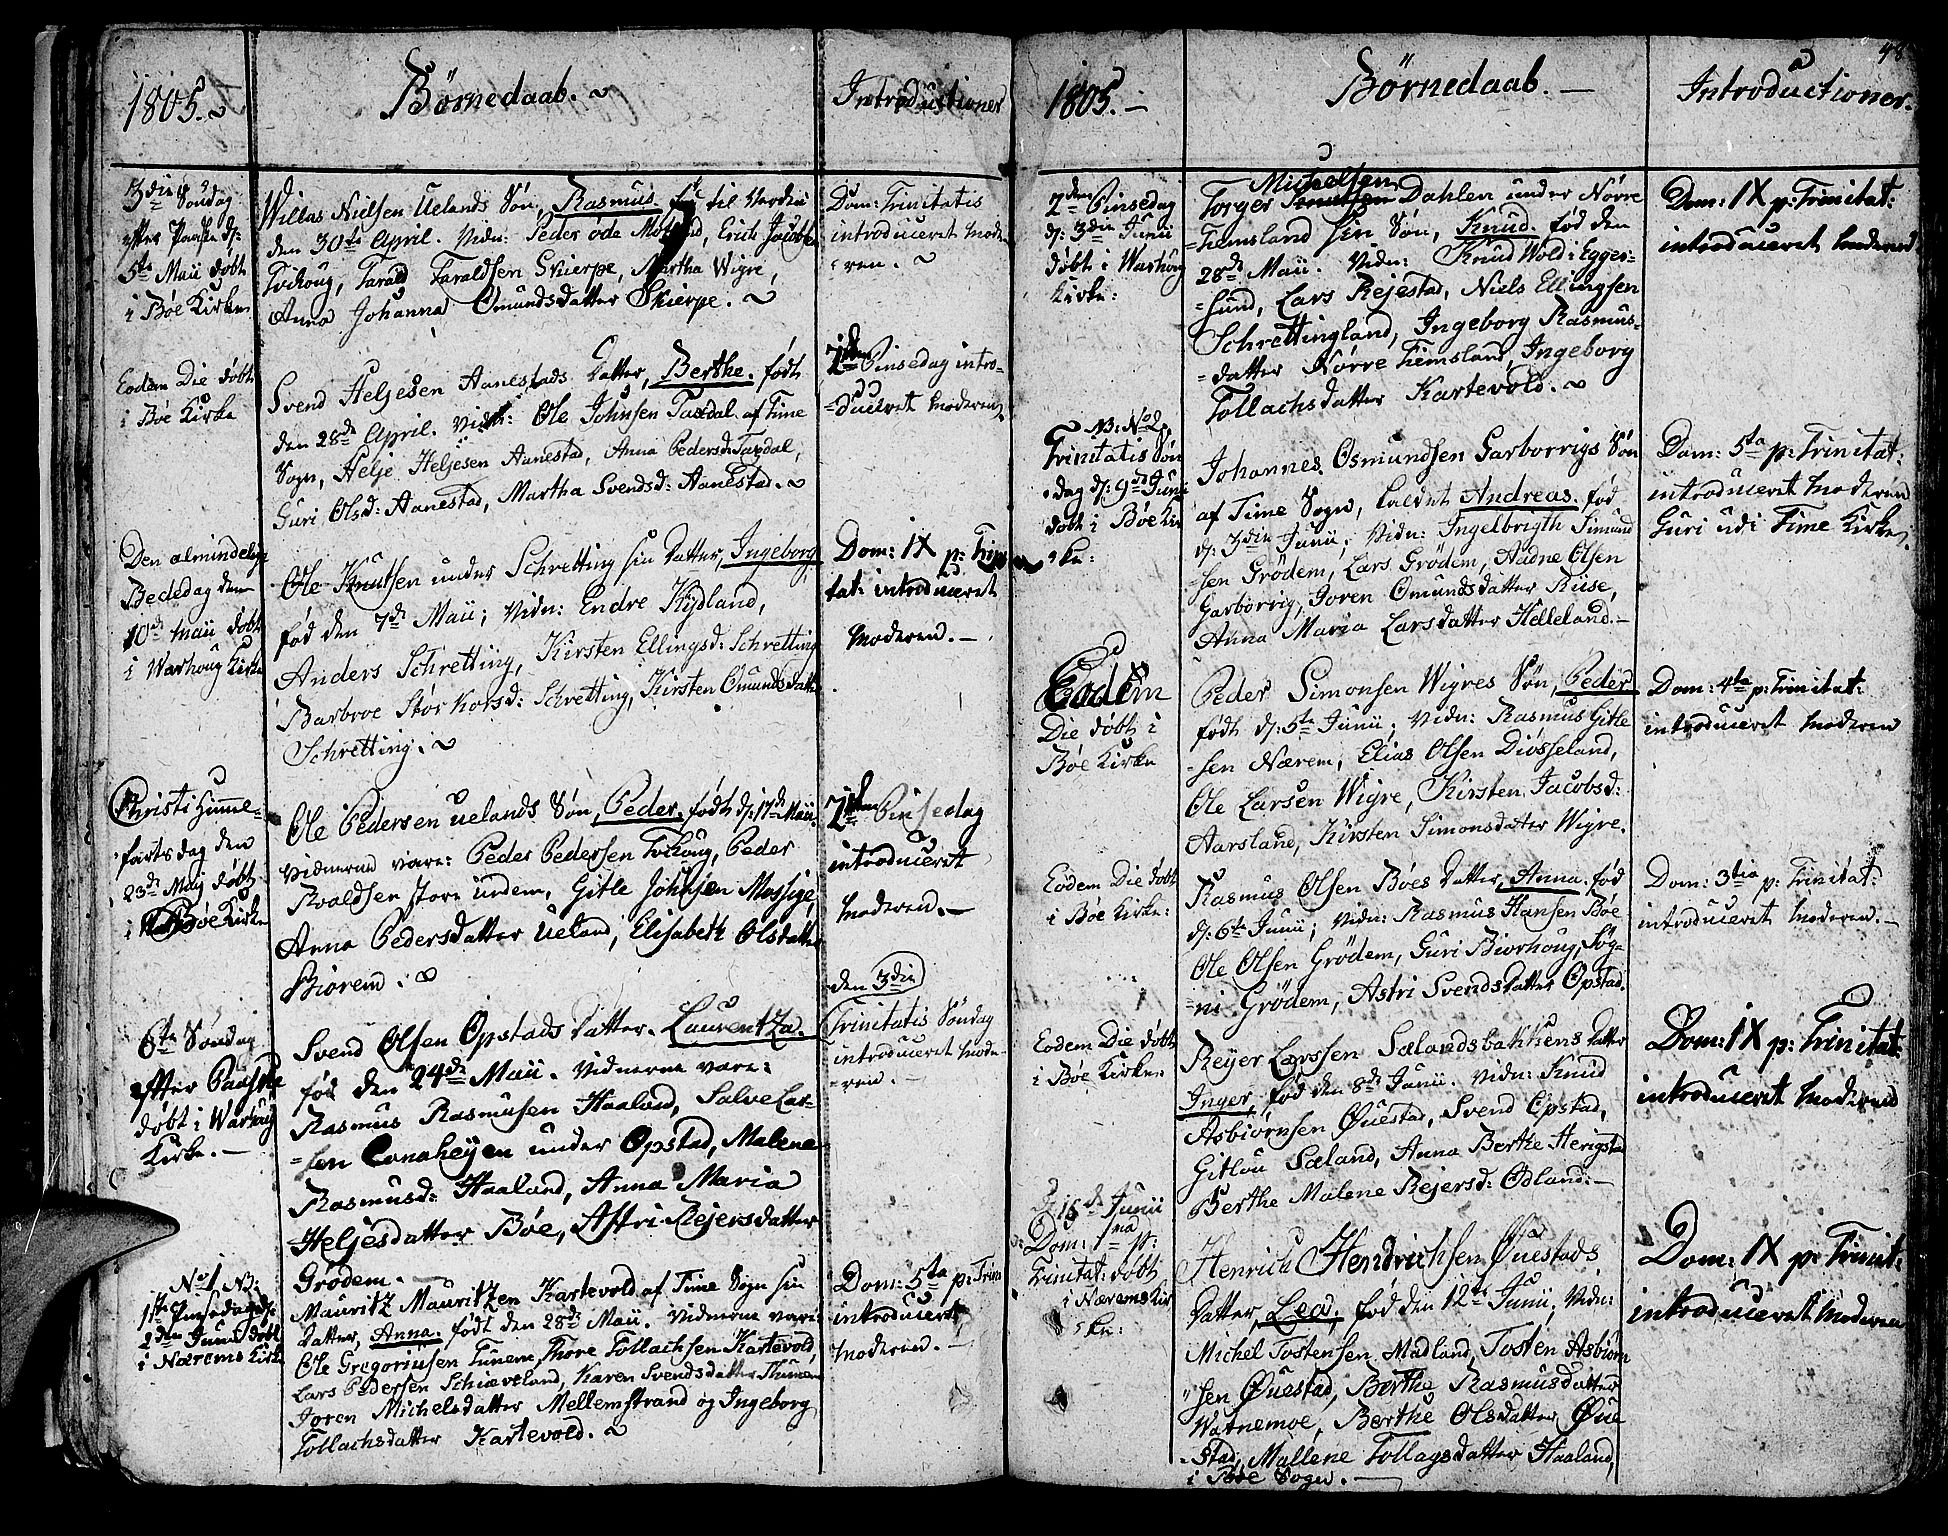 1805.
Børnedaab.
Introductioner
3die Søndag
efter Paaske d:
5te Maii døbt
i Bøe Kirke.
Willas Nielsen Uelands Søn, Rasmus til Verden
den 30te April. Vidn: Peder øde Motland, Erich Jacobsen
Tvihoug, Tarald Taraldsen Skierpe, Martha Wigre,
Anna Johanna Omundsdatter Skierpe.
Dom: Trinitatis
introduceret Mode-
-ren.
Eodem Die døbt
i Bøe Kirke
Svend Heljesen Aanestads Datter, Berthe. født
den 28de April. Vidn: Ole Johnsen Taxdal af Time
Sogn, Helje Heljesen Aanestad, Anna Pedersd: Taxdal,
Guri Olsd: Aanestad, Martha Svendsd: Aanestad.
2den Pinsedag intro-
-duceret Moderen.
Den almindelige
Bededag den
10de Maii døbt
i Warhoug Kirke
Ole Knutsen under Schretting sin Datter, Ingeborg
fød den 7de Maii; Vidn: Endre Kydland,
Anders Schretting, Kirsten Ellingsd: Schretting
Barbroe Storkorsd: Schretting, Kirsten Omundsdatter
Schretting.
Dom: IX p: Trini-
tat: introduceret
Moderen.
Christi Himmel-
fartsdag den
23de Maj døbt
i Bøe Kirke
Ole Pedersen Uelands Søn, Peder. født d: 17de Maii.
Vidnerne vare: Peder Pedersen Tvihoug, Peder
Roaldsen store Urdem, Gitle Johnsen Mossige,
Anna Pedersdatter Ueland, Elisabeth Olsdatter
Biorem.
2den Pinsedag
introduceret
Moderen.
6te Søndag
efter Paaske
døbt i Warhoug
Kirke.
Svend Olsen Opstads Datter. Laurentza.
fød den 24de Maii. Vidnerne vare:
Rasmus Rasmusen Haaland, Salve Lar-
-sen Lonaheyen under Opstad, Malene
Rasmusd: Haaland, Anna Maria
Heljesdatter Bøe, Astri Rejersdatter
Grødem.
den 3die
Trinitatis Søndag
introduceret Mode-
-ren.
No 1 NB:
1ste Pinsedag d:
2den Junii døbt
i Nærems Kirke
Mauritz Mauritzen Kartevold af Time Sogn sin
Datter, Anna. født den 28de Maii. Vidnerne vare:
Ole Gregoriusen Tunem, Thore Tollachsen Kartevold,
Lars Pedersen Schiæveland, Karen Svendsdatter Thunem
Joren Michelsdatter Mellemstrand og Ingeborg
Tollachsdatter Kartevold.
Dom: 5ta p: Trin:
introduceret
Moderen.
48
1805.
Børnedaab.
Introductioner.
2den Pinsedag
d: 3die Junii
døbt i Warhoug
Kirke:
Michelsen
Torger Dahlen under Nørre
Hiemsland sin Søn, Knud. fød den
28de Maii. Vidn: Knud Wold i Egger-
-sund, Lars Rejestad, Niels Ellingsen
Schrettingland, Ingeborg Rasmus-
-datter Nørre Hiemsland, Ingeborg
Tollachsdatter Kartevold.
Dom: IX p: Trinitat:
introduceret Moderen
NB: No 2
Trinitatis Søn
dag d: 9de Junii
døbt i Bøe Kir
ke:
Johannes Osmundsen Garborrigs Søn
af Time Sogn, kaldet Andreas. fød
d: 3die Junii; Vidn: Ingelbrigth Simund
-sen Grødem, Lars Grødem, Aadne Olsen
Garborrig, Joren Omundsdatter Ruse,
Anna Maria Larsdatter Helleland.
Dom: 5ta p: Trinitat:
introduceret Moderen
Guri udi Time Kirke.
Eodem
Die døbt i
Bøe Kirke
Peder Simonsen Wigres Søn, Peder
født d: 5te Junii; Vidn: Rasmus Gitle
-sen Nærem, Elias Olsen Diøsseland,
Ole Larsen Wigre, Kirsten Jacobsd:
Aarsland, Kirsten Simonsdatter Wigre.
Dom: 4ta p: Trinitat:
introduceret Moderen
Eodem Die døbt
i Bøe Kirke:
Rasmus Olsen Bøes Datter, Anna. fød
d: 6te Junii; Vidn: Rasmus Hansen Bøe
Ole Olsen Grødem, Guri Biorhoug, Søg-
-ni Grødem, Astri Svendsdatter Opstad.
Dom: 3tia p: Trinitat:
introduceret Moderen.
Eodem Die døbt
i Bøe Kirke:
Rejer Larssen Sælandsbakkens Datter
Inger, fød den 8de Junii. Vidn: Knud
Asbiørnsen Øuestad, Svend Opstad,
Gitlou Sæland, Anna Berthe Herigstad
Berthe Malene Rejersd: Ødland.
Dom: IX p: Trinitat:
introduceret Moderen
d: 16de Junii
Dom: 1ma p:
Trinitat: døbt
i Nærems Kir
ke:
Henrich Hendrichsen Øuestads
Datter, Lea, fød den 12te Junii, Vidn:
Michel Tostensen Madland, Tosten Asbiørn
sen Øuestad, Berthe Rasmusdatter
Watnemoe, Berthe Olsdatter Øue
stad, Mallene Tollagsdatter Haaland,
i Bøe Sogn.
Dom: IX p: Trinit:
introduceret Moderen